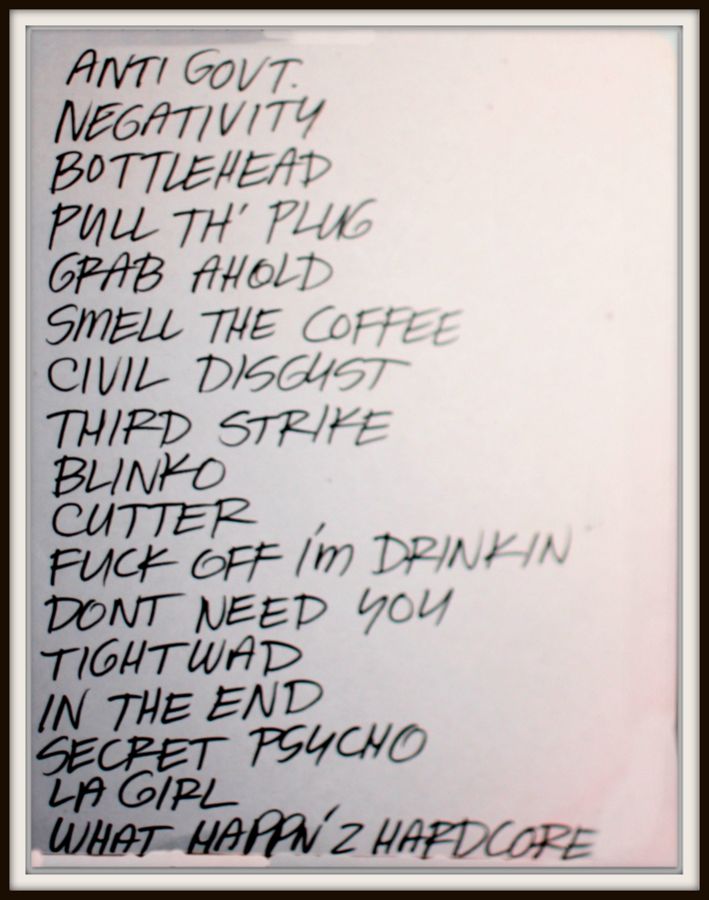 ANTI GOVT.
NEGATIVITY
BOTTLEHEAD
PULL TH' PLUG
GRAB AHOLD
SMELL THE COFFEE
CIVIL DISGUST
THIRD STRIKE
BLINKO
CUTTER
FUCK OFF I'm DRINKIN
DONT NEED YOU
TIGHTWAD
IN THE END
SECRET PSYCHO
LA GIRL
WHAT HAPPN' 2 HARDCORE